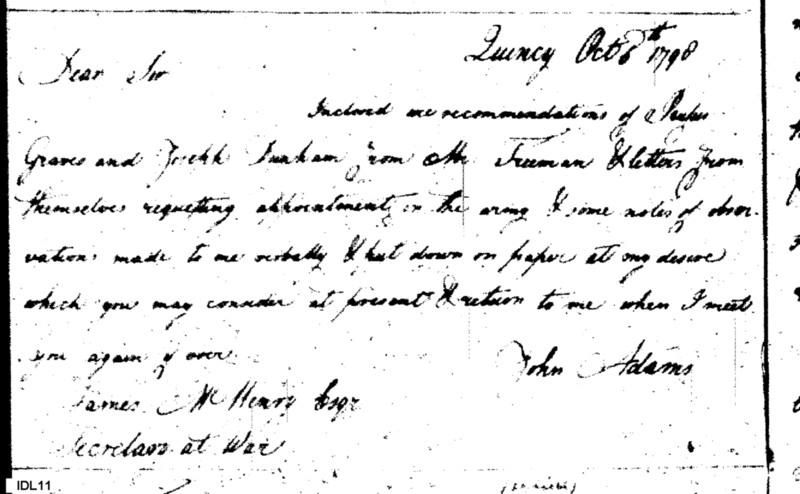 Quincy Oct 6th 1798
Dear Sir
Inclosed are recommendations of Rufus
Graves and Joseph Dunham from Mr Freeman & letters from
themselves requesting appointments in the army & some notes of obser-
vations made to me verbally & put down on paper at my desire
which you may consider at present & return to me when I meet
you again if ever
John Adams
James McHenry Esqr
Secretary at War
IDL11